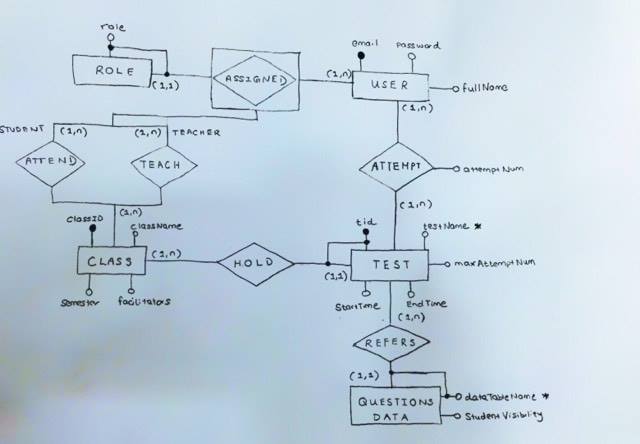 role
email
password
ROLE
(1,1)
ASSIGNED
(1,n)
USER
fullName
(1,n)
STUDENT
(1,n)
(1,n)
TEACHER
ATTEND
TEACH
ATTEMPT
attemptNum
(1,n)
(1,n)
classID
className
tid
testName *
CLASS
(1,n)
HOLD
(1,1)
TEST
maxAttemptNum
semester
facilitators
StartTime
EndTime
(1,n)
REFERS
(1,1)
QUESTIONS
DATA
dataTableName *
StudentVisibility